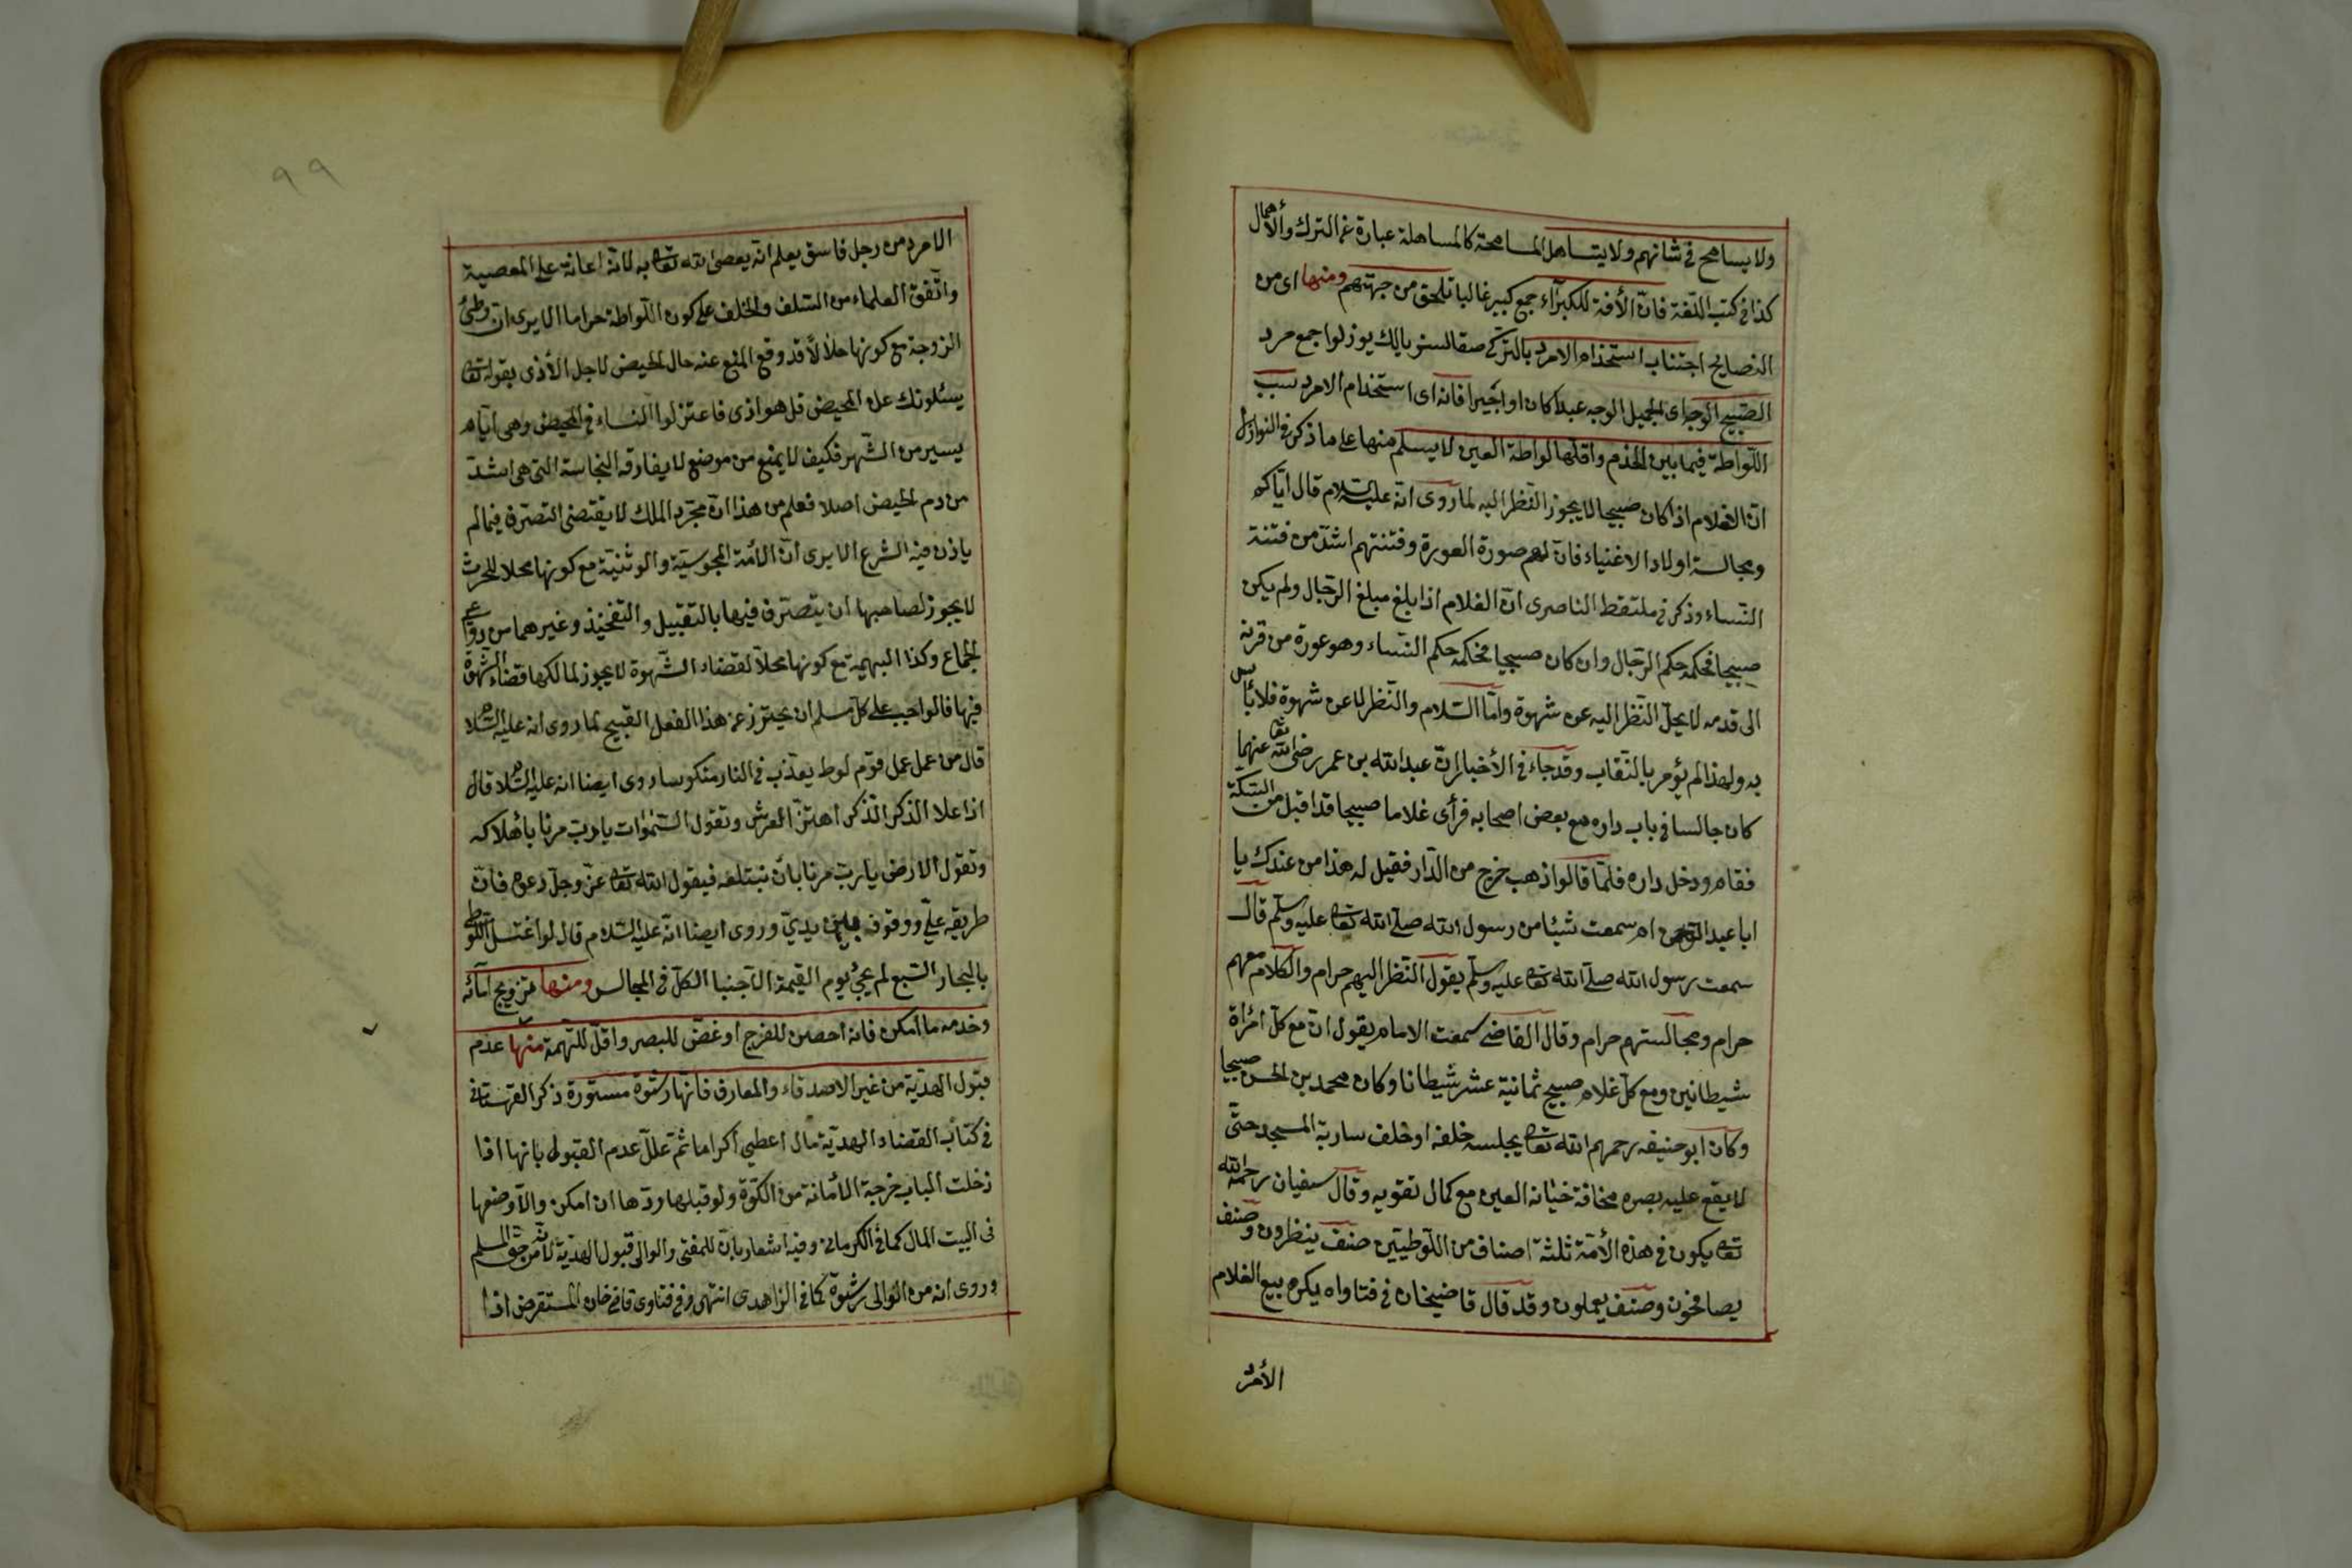 ولا يسامح في شانهم ولا يتساهل المسامحة كالمساهلة عبارة عن الترك والأهمال
كذا في كتب اللغة فان الأفة للكبرآء جمع كبير غالبا تلحق من جهتهم ومنها اى من
النصايح اجتناب استخدام الامرد بالتركى صقالسز بالك يوزلو اجمع مرد
الصبيح الوجه اى الجميل الوجه عبدا كان او اجيرا فانه اى استخدام الامرد سبب
اللواطة فيما بين الخدم واقلها لواطة العين لا يسلم منها على ما ذكر في النوازل
ان الغلام اذا كان صبيحا لا يجوز النظر اليه لما روى انه عليه السلام قال اياكم
ومجالسة اولاد الاغنياء فان لهم صورة العورة وفتنتهم اشد من فتنة
النساء وذكر في ملتقط الناصرى ان الغلام اذا بلغ مبلغ الرجال ولم يكن
صبيحا فحكمه حكم الرجال وان كان صبيحا فحكمه حكم النساء وهو عورة من قرنه
الى قدمه لا يحل النظر اليه عن شهوة واما السلام والنظر لا عن شهوة فلا بأس
به ولهذا لم يؤمر بالنقاب وقد جاء في الأخبار ان عبد الله بن عمر رضى الله تعا عنهما
كان جالسا في باب داره مع بعض اصحابه فرأى غلاما صبيحا قد اقبل من السكة
فقام ودخل داره فلما قالوا ذهب خرج من الدار فقيل له هذا من عندك يا
ابا عبد الرحمن ام سمعت شيئا من رسول الله صلى الله تعا عليه وسلم قال
سمعت رسول الله صلى الله تعا عليه وسلم يقول النظر اليهم حرام والكلام معهم
حرام ومجالستهم حرام وقال القاضى سمعت الامام يقول ان مع كل امرأة
شيطانين ومع كل غلام صبيح ثمانية عشر شيطانا وكان محمد بن الحسن صبيحا
وكان ابو حنيفه رحمهم الله تعا يجلسه خلفه او خلف سارية المسجد حتى
لا يقع عليه بصره مخافة خيانة العين مع كمال تقويه وقال سفيان رحمه الله
تعا يكون في هذه الأمة ثلثة اصناف من اللوطيين صنف ينظرون وصنف
يصافحون وصنف يعملون وقد قال قاضيخان في فتاواه يكره بيع الغلام
الأمرد
٩٩
الامرد من رجل فاسق يعلم انه يعصى الله تعا به لانه اعانة على المعصية
واتفق العلماء من السلف والخلف على كون اللواطة حراما الا يرى ان وطئ
الزوجة مع كونها حلالا قد وقع المنع عنه حال الحيض لاجل الأذى بقوله تعا
يسئلونك عن المحيض قل هو اذى فاعتزلوا النساء في المحيض وهى ايام
يسير من الشهر فكيف لا يمنع من موضع لا يفارقه النجاسة التى هى اشد
من دم الحيض اصلا فعلم من هذا ان مجرد الملك لا يقتضى التصرف فيما لم
ياذن فيه الشرع الا يرى ان الأمة المجوسية والوثنية مع كونها محلا للحرث
لا يجوز لصاحبها ان يتصرف فيها بالتقبيل والتفخيذ وغيرهما من دواعى
الجماع وكذا البهيمة مع كونها محلا لقضاء الشهوة لا يجوز لمالكها قضاء الشهوة
فيها فالواجب على كل مسلم ان يحترز عن هذا الفعل القبيح لما روى انه عليه السلام
قال من عمل عمل قوم لوط يعذب في النار منكوسا روى ايضا انه عليه السلام قال
اذا علا الذكر الذكر اهتز العرش وتقول السموات يا رب مرنا باهلاكه
وتقول الارض يا رب مرنا بان نبتلعه فيقول الله تعا عز وجل دعوه فان
طريقه على ووقوفه بين يدى وروى ايضا انه عليه السلام قال لو اغتسل اللوطى
بالبحار السبع لم يجئ يوم القيمة الا جنبا الكل في المجالس ومنها تزويج امائه
وخدمه ما امكن فانه احصن للفرج او غض للبصر واقل للتهمة منها عدم
قبول الهدية من غير الاصدقاء والمعارف فانها رشوة مستورة ذكر القهستانى
في كتاب القضاء الهدية مال اعطى اكراما ثم علل عدم القبول بانها اذا
دخلت الباب خرجت الأمانة من الكوة ولو قبلها ردها ان امكن والا وضعها
فى البيت المال كما في الكرمانى وفيه اشعار بان للمفتى والوالى قبول الهدية لانه من حق المسلم
وروى انه من الوالى رشوة كما في الزاهدى انتهى وفي فتاوى قاضى خان المستقرض اذا